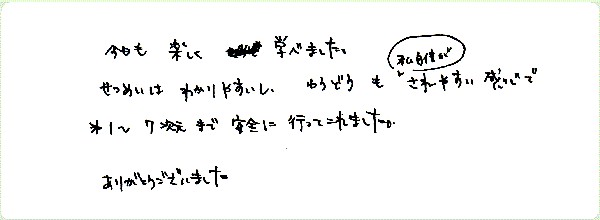 今日も 楽しく 学べました。
せつめいは わかりやすいし、 ゆうどう も 私自信が されやすい 感じで
1~7次元まで 安全に 行ってこれました。
ありがとうございました